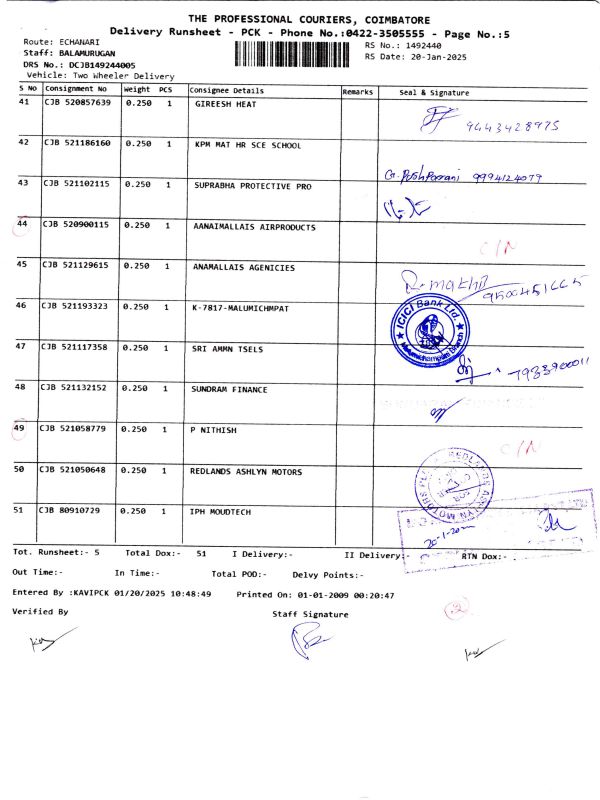 THE PROFESSIONAL COURIERS, COIMBATORE
Delivery Runsheet - PCK - Phone No.:0422-3505555 - Page No.:5
Route: ECHANARI
RS No.: 1492440
Staff: BALAMURUGAN
RS Date: 20-Jan-2025
DRS No.: DCJB149244005
Vehicle: Two Wheeler Delivery
S No Consignment No Weight PCS Consignee Details Remarks Seal & Signature
41 CJB 520857639 0.250 1 GIREESH HEAT
9443428975
42 CJB 521186160 0.250 1 KPM MAT HR SCE SCHOOL
9994124079
43 CJB 521102115 0.250 1 SUPRABHA PROTECTIVE PRO
44 CJB 520900115 0.250 1 AANAIMALLAIS AIRPRODUCTS
C/N
45 CJB 521129615 0.250 1 ANAMALLAIS AGENICIES
46 CJB 521193323 0.250 1 K-7817-MALUMICHMPAT
ICICI Bank Ltd.
47 CJB 521117358 0.250 1 SRI AMMN TSELS
48 CJB 521132152 0.250 1 SUNDRAM FINANCE
49 CJB 521058779 0.250 1 P NITHISH
C/N
50 CJB 521050648 0.250 1 REDLANDS ASHLYN MOTORS
REDLANDS ASHLYN MOTORS
FOR
51 CJB 80910729 0.250 1 IPH MOUDTECH
Tot. Runsheet:- 5 Total Dox:- 51 I Delivery:- II Delivery:- RTN Dox:-
Out Time:- In Time:- Total POD:- Delvy Points:-
Entered By :KAVIPCK 01/20/2025 10:48:49 Printed On: 01-01-2009 00:20:47
Verified By Staff Signature
2